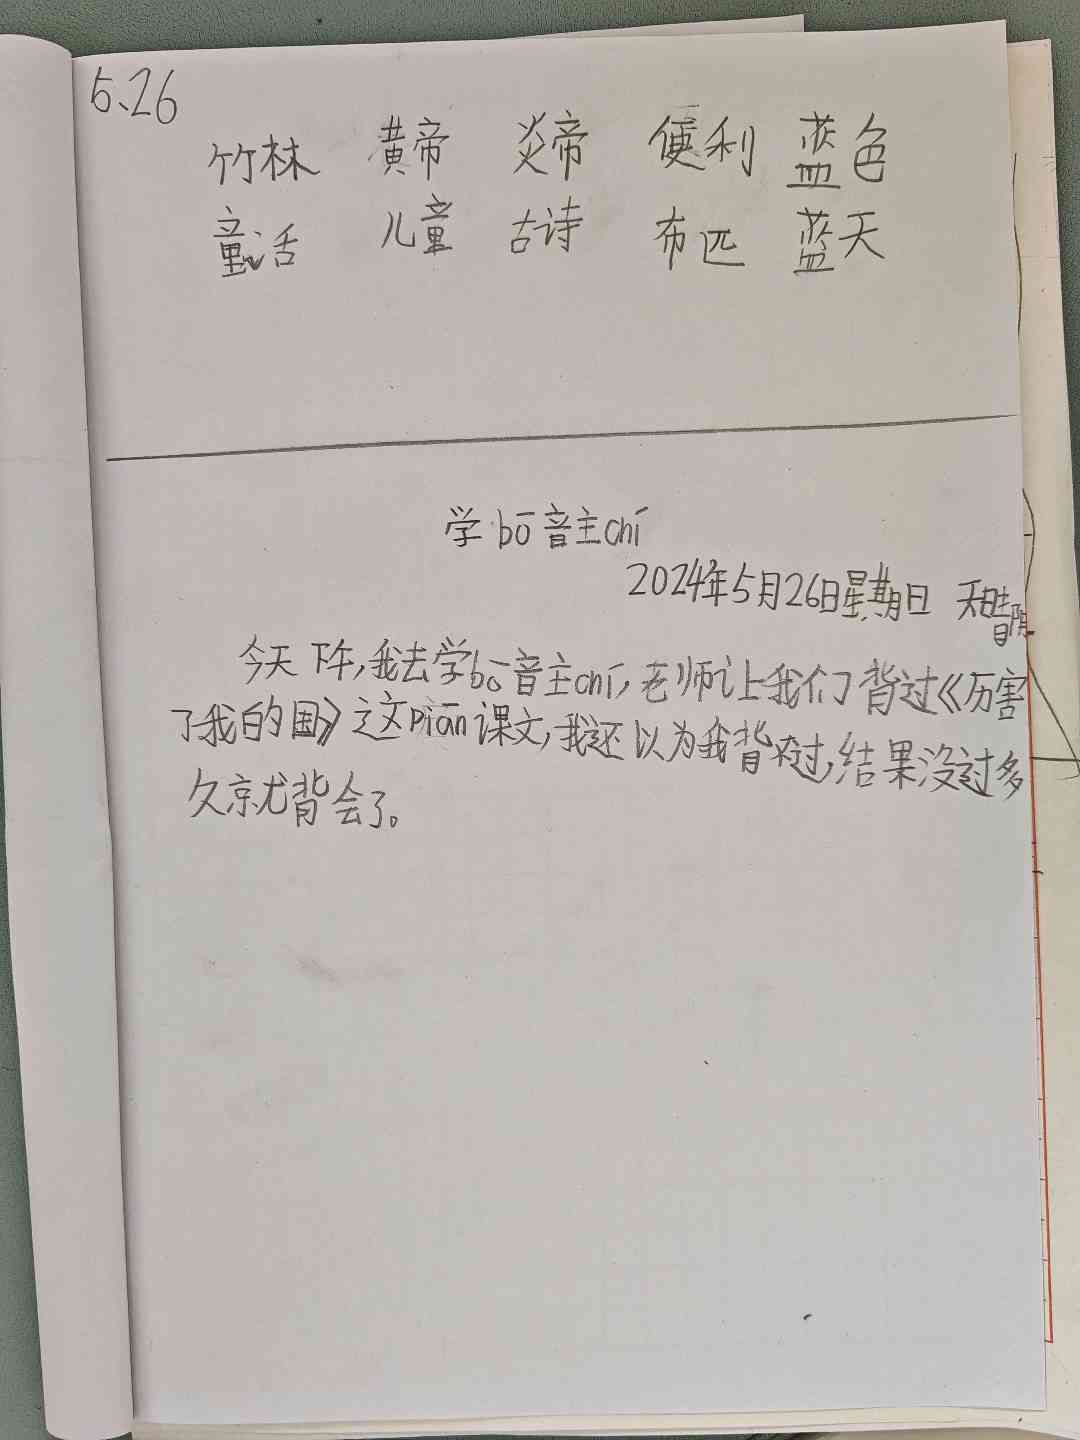 5.26
竹林 黄帝 炎帝 便利 蓝色
童话 儿童 古诗 布匹 蓝天
学bō音主chí
2024年5月26日星期日 天晴阴
今天下午,我去学bō音主chí,老师让我们背过《厉害
了我的国》这piān课文,我还以为我背不过,结果没过多
久就背会了。